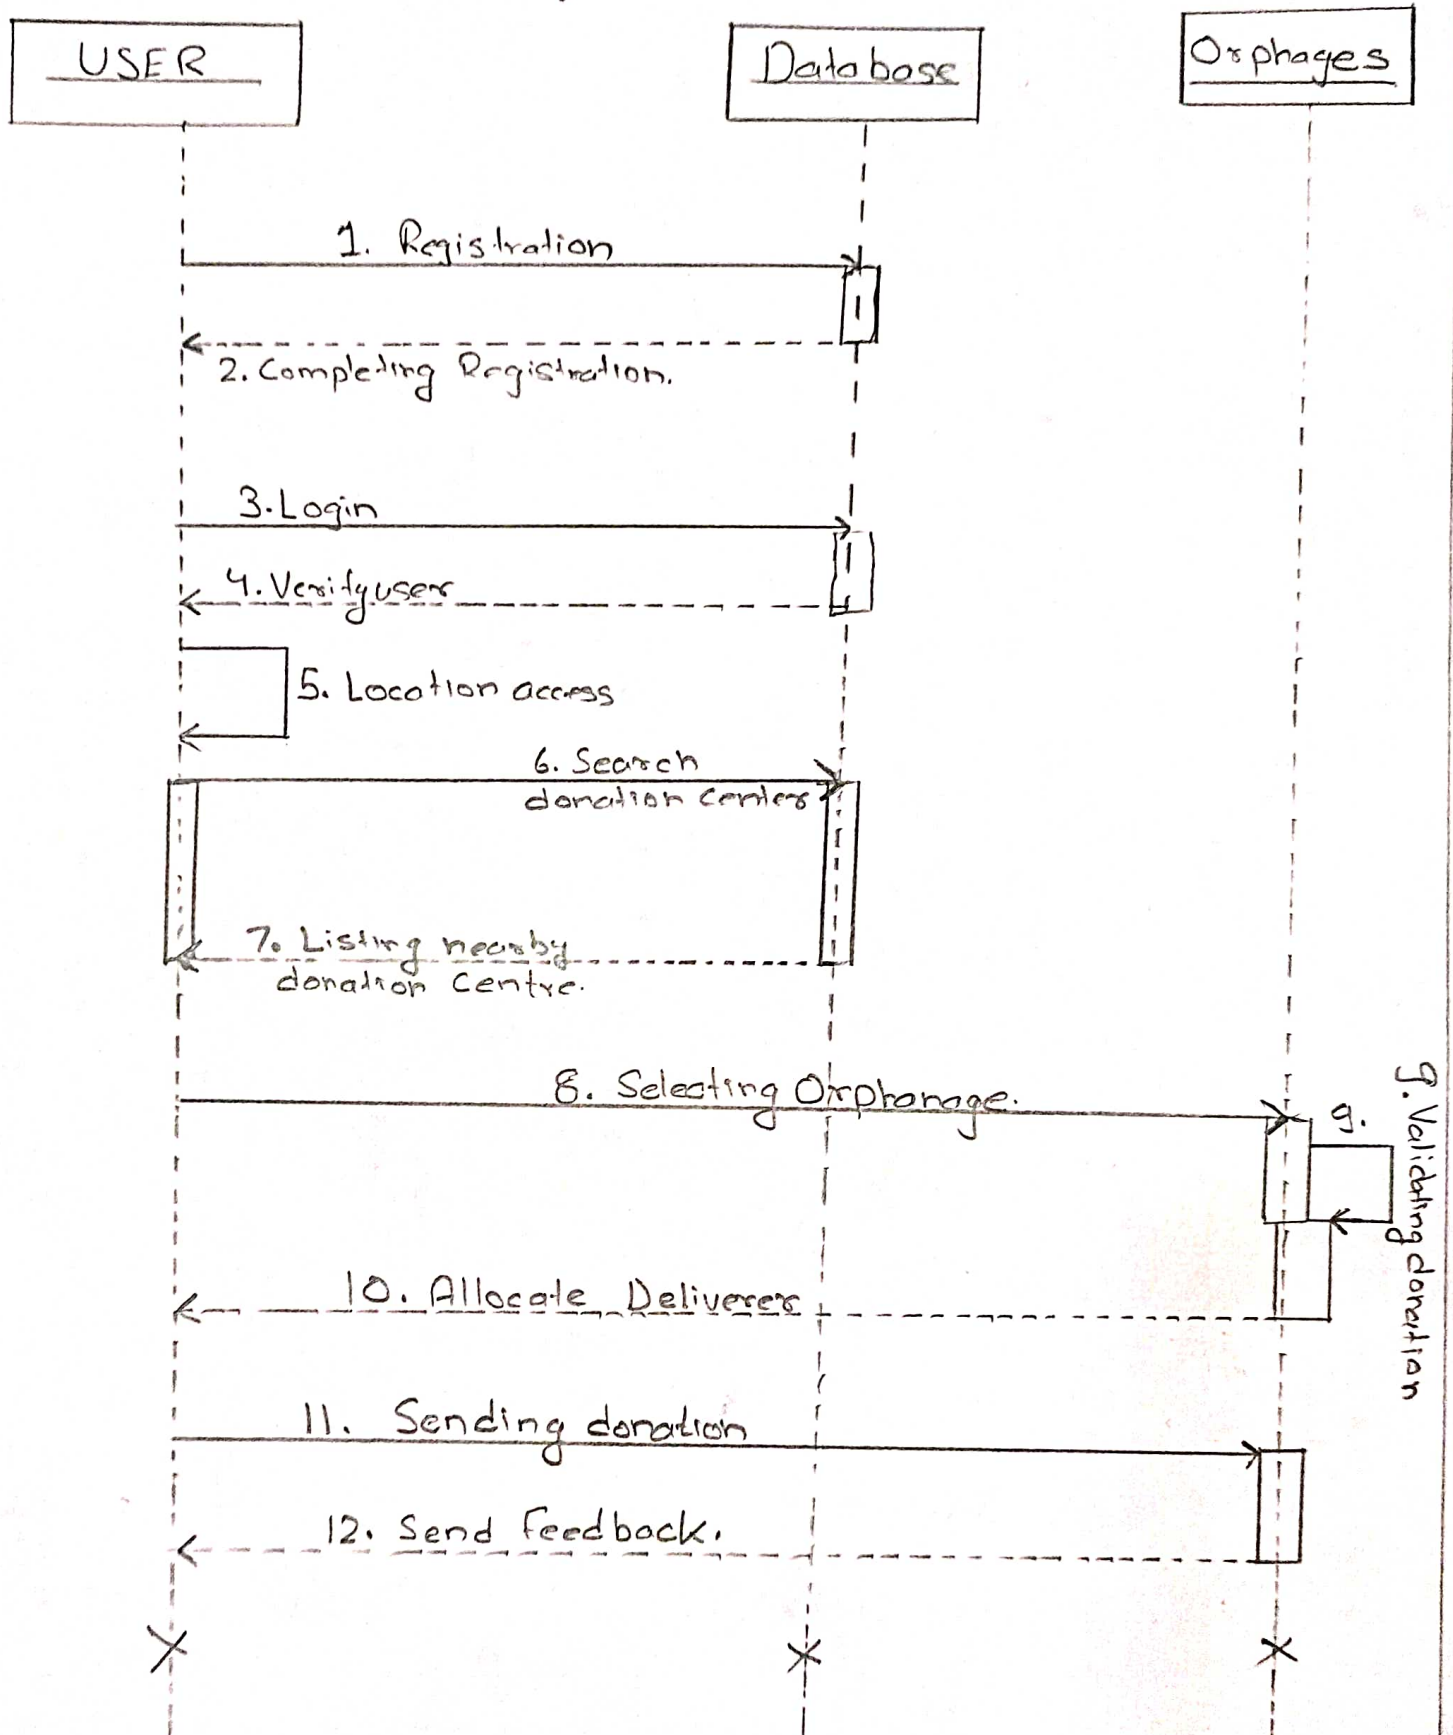 USER
Database
Orphages
1. Registration
2. Completing Registration.
3. Login
4. Verify user
5. Location access
6. Search
donation center
7. Listing nearby
donation Centre.
8. Selecting Orphanage.
9.
9. Validating donation
10. Allocate Deliverer
11. Sending donation
12. Send Feedback.